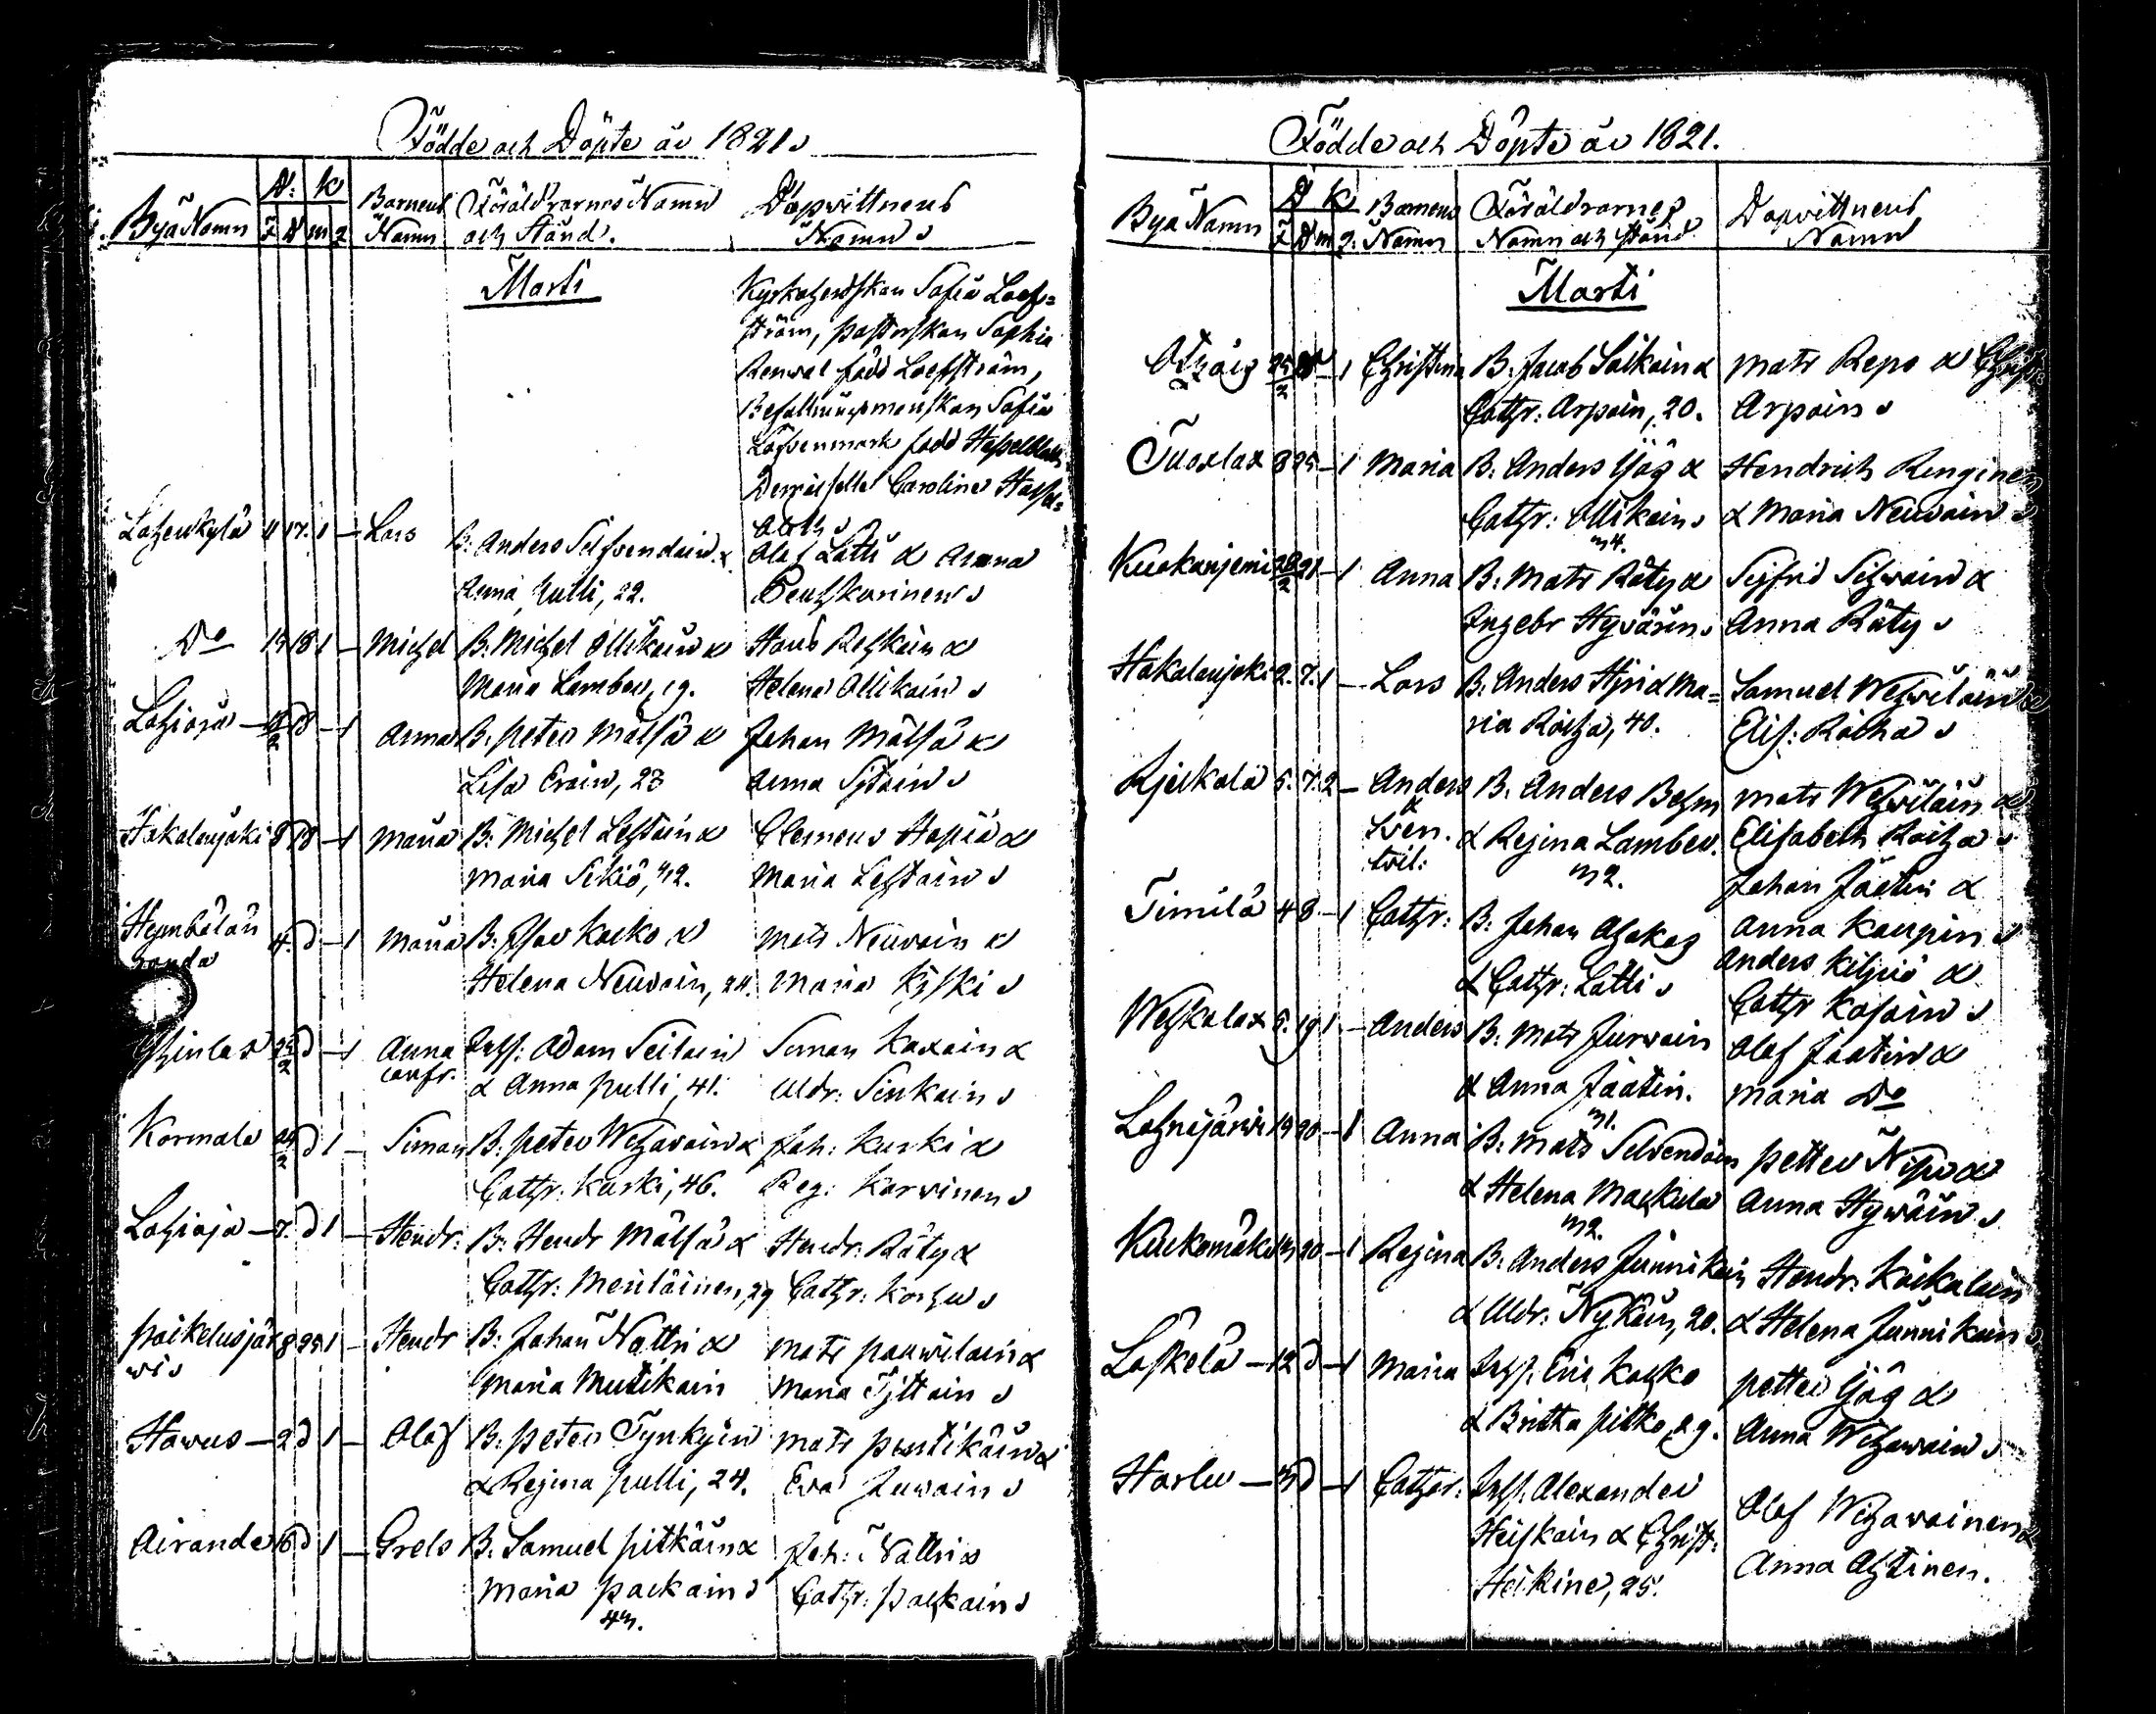 Födde och Döpte år 1821.
Bya Namn F D m q Barnens Namn Föräldrarnes Namn och Stånd. Dopvittnens Namn
Marti
Kyrkoherdskan Sofia Loef=
ström, pastorskan Sophia
Renval född Loefström,
Befallningsmanskan Sofia
född
Demoiselle Carolina Hassel=
blatt
11 17. 1 – Lars B. Anders Silfvendain &
Anna Pulli, 22.
Olof Lätti & Anna
Do 18 1 – Michel B. Michel Ollikain &
Maria Lamber, 19.
Hans &
Helena Ollikain
Lahioja – 18 – 1 Anna B. Peter Mälsä &
Lisa Eroin, 23
Johan Mälsä &
Anna
Hakalanjoki 8 18 – 1 Maria B. Michel Lestain &
Maria Sikiö, 42.
Clemens Hapio &
Maria Lestain
Hymbölän
randa 4. D – 1 Maria B. Olov Kocko &
Helena Neuvoin, 24.
Mats Neuvoin &
Maria Kiski
D – 1 Anna Inhs: Adam Seilain
& Anna Pulli, 41.
Simon Kaxain &
Uldr: Sinkain
Kormala 24/2 D 1 – Simon B. Peter Wihavain &
Cathr: Kurki, 46.
Joh: Kurki &
Reg: Karvinen
Lahioja – 7. D 1 – Hendr: B. Hendr Mälsä &
Cathr: Meriläinen, 29
Hendr: Räty &
Cathr: Korhu
Paikelusjär
wi 8 25 1 – Hendr B. Johan Natri &
Maria Mutikain
Mats Pauwilain &
Maria
Hawus – 2 D 1 – Olof B. Peter Tynkyin
& Regina Pulli, 24.
Mats Partikain &
Eva Juwain
Airanda 16 D 1 – Grels B. Samuel Pitkäin &
Maria Packain
43.
Joh: Nattri &
Cathr: Packain
Födde och Döpte år 1821.
Bya Namn F D m q. Barnens Namn Föräldrarnes Namn och stånd Dopvittnens Namn
Marti
Otsois 25/2 – 1 Christina B. Jacob Laikain &
Cathr: Arpain, 20.
Mats Repo &
Arpain
Tuoxlax 8 25 – 1 Maria B. Anders Yög &
Cathr: Ollikain
Hendrich Renginen
& Maria Neuvain
Kuokanjemi 28/2 21 – 1 Anna B. Mats Räty &
Ingebr Hyvärin
Sigfrid Sihvoin &
Anna Räty
Hakalanjoki 2. 7. 1 – Lars B. Anders Hyri & Ma=
ria Roitha, 40.
Samuel Wehviläin &
Elis: Roitha
Rjeckala 5. 7. 2 – Anders
&
Sven.
tvil:
B. Anders Behm
& Regina Lamber.
32.
Mats Wehviläin &
Elisabeth Roitha
Timila 4 8 – 1 Cathr: B. Johan Ahokas
& Cathr: Lätti
Johan Jäetin &
Anna Kaupin
Weskalax 5. 19 1. – Anders B. Mats Jurvain
& Anna Jäätin.
31.
Anders Kilpiö &
Cathr Kosoin
Olof Jäätin &
Maria Do
Lahnejärwi 19 20 – 1 Anna B. Mats Selvendain
& Helena Mackela
32.
Petter &
Anna Hywärin
Kuckomäki 13 20 – 1 Regina B. Anders Junnikain
& Uldr: Nykäin, 20.
Hendr: Kaikalain
& Helena Junnikain
Laskela – 12 D – 1 Maria Inhs: Eric Kocko
& Britha Pitko, 29.
Petter Yög &
Anna Wihavain
Harlu – D – 1 Cathr: Inhs: Alexander
Heiskain & Christ:
Heikine, 25.
Olof Wihavainen &
Anna Ahtinen.